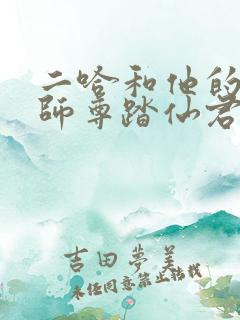 二哈和他的
師尊踏仙君
吉田夢美
未经同意禁止转载